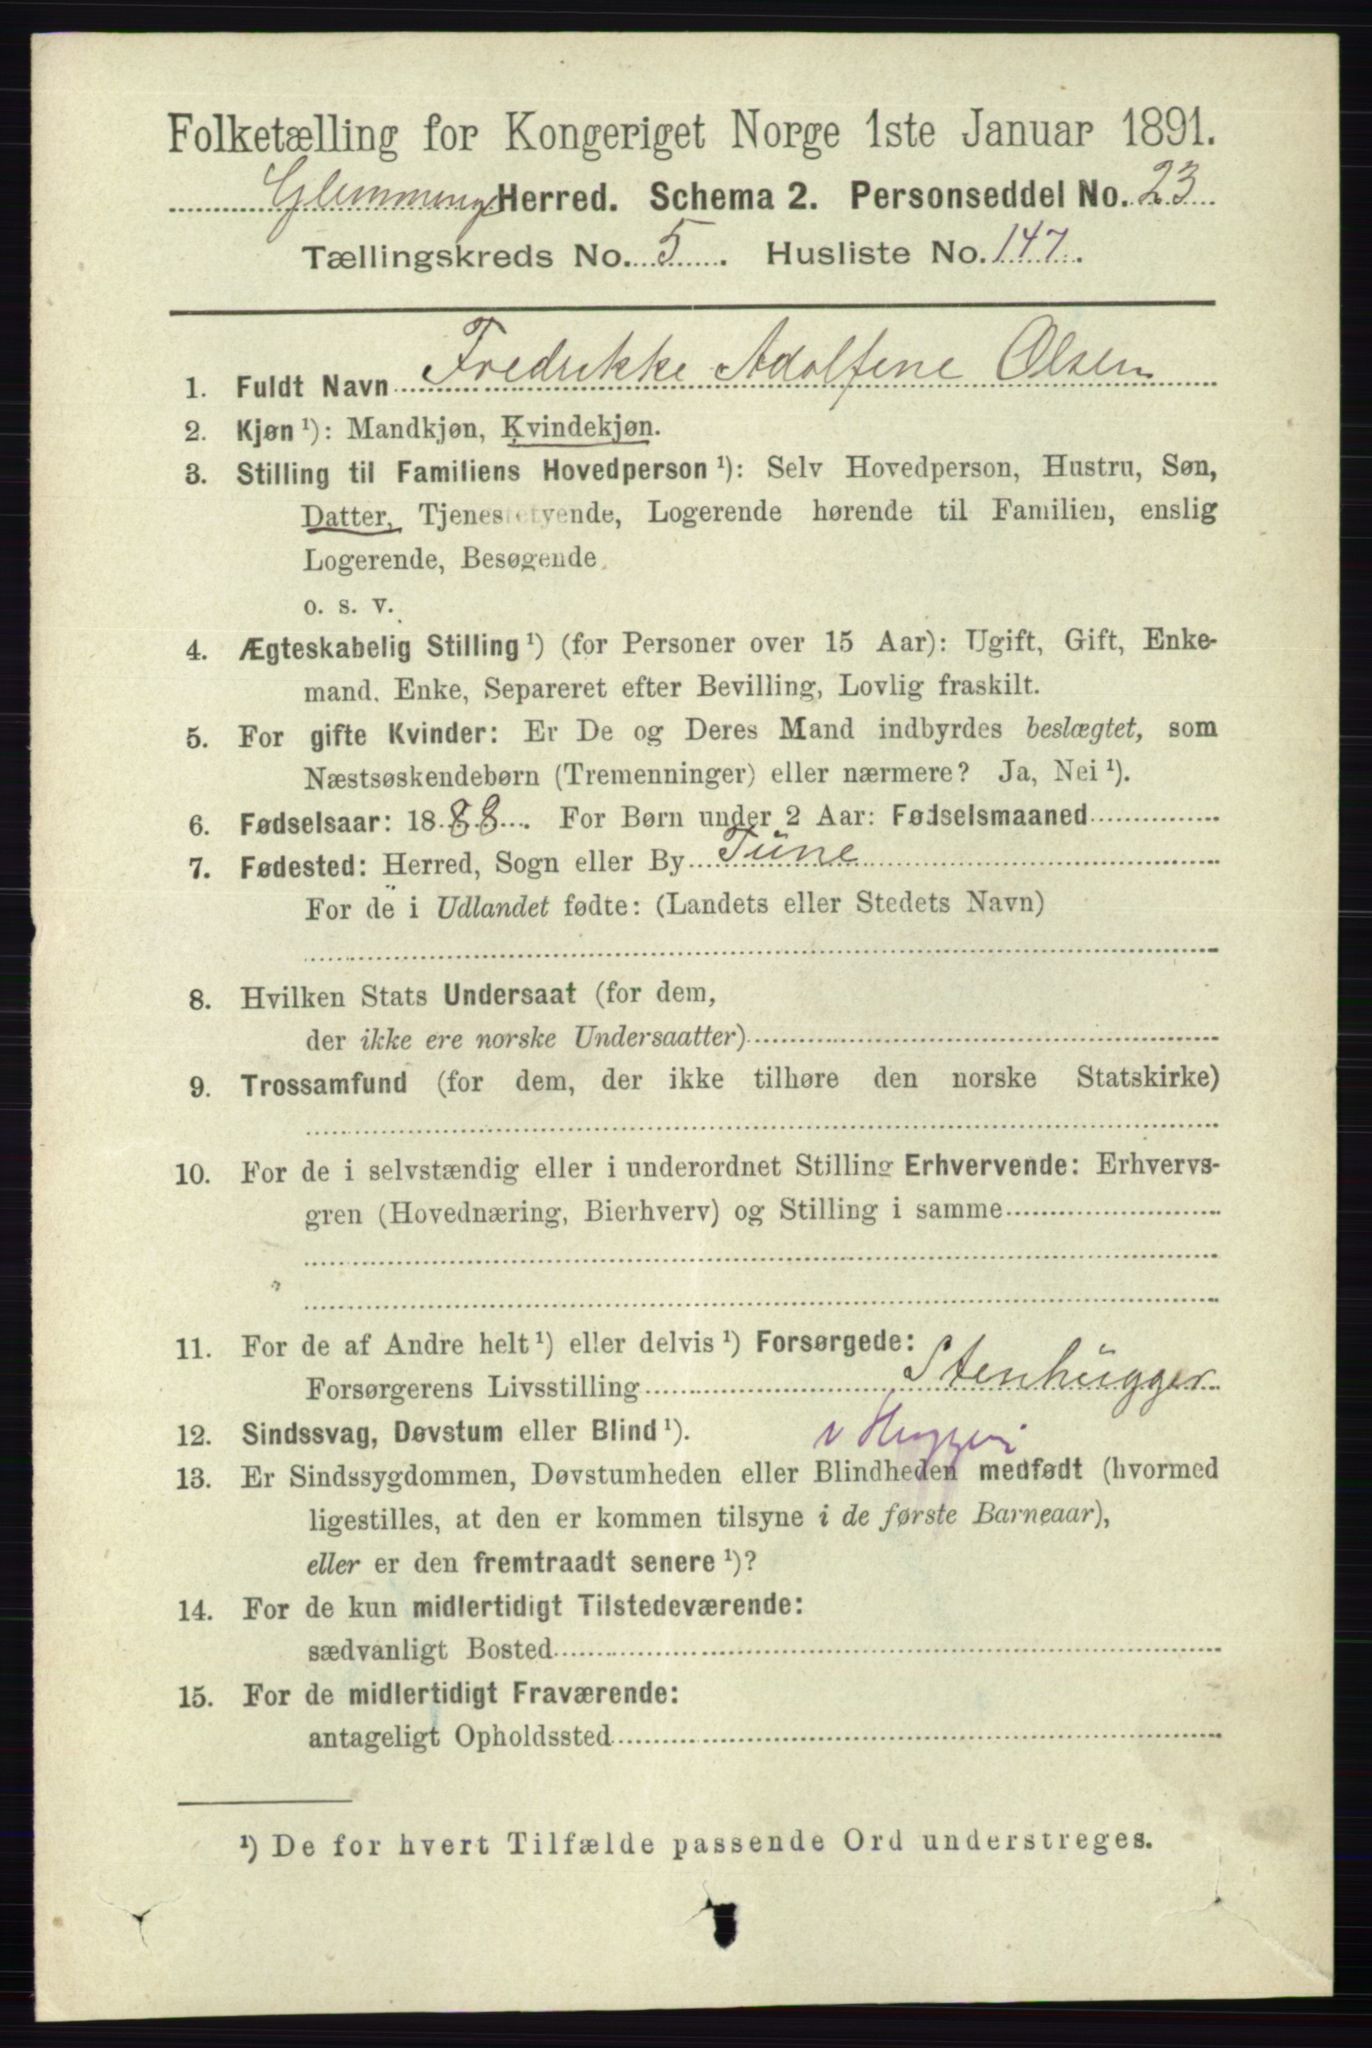 Folketælling for Kongeriget Norge 1ste Januar 1891.
Glemminge Herred. Schema 2. Personseddel No. 23
Tællingskreds No. 5. Husliste No. 147.
1. Fuldt Navn Fredrikke Adolfine Olsen
2. Kjøn ¹): Mandkjøn, Kvindekjøn.
3. Stilling til Familiens Hovedperson ¹): Selv Hovedperson, Hustru, Søn,
Datter, Tjenestetyende, Logerende hørende til Familien, enslig
Logerende, Besøgende
o. s. v.
4. Ægteskabelig Stilling ¹) (for Personer over 15 Aar): Ugift, Gift, Enke-
mand, Enke, Separeret efter Bevilling, Lovlig fraskilt.
5. For gifte Kvinder: Er De og Deres Mand indbyrdes beslægtet, som
Næstsøskendebørn (Tremenninger) eller nærmere? Ja, Nei ¹).
6. Fødselsaar: 1888. For Børn under 2 Aar: Fødselsmaaned
7. Fødested: Herred, Sogn eller By Tune
For de i Udlandet fødte: (Landets eller Stedets Navn)
8. Hvilken Stats Undersaat (for dem,
der ikke ere norske Undersaatter)
9. Trossamfund (for dem, der ikke tilhøre den norske Statskirke)
10. For de i selvstændig eller i underordnet Stilling Erhvervende: Erhvervs-
gren (Hovednæring, Bierhverv) og Stilling i samme
11. For de af Andre helt ¹) eller delvis ¹) Forsørgede:
Forsørgerens Livsstilling Stenhugger
12. Sindssvag, Døvstum eller Blind ¹).
13. Er Sindssygdommen, Døvstumheden eller Blindheden medfødt (hvormed
ligestilles, at den er kommen tilsyne i de første Barneaar),
eller er den fremtraadt senere ¹)?
14. For de kun midlertidigt Tilstedeværende:
sædvanligt Bosted
15. For de midlertidigt Fraværende:
antageligt Opholdssted
¹) De for hvert Tilfælde passende Ord understreges.